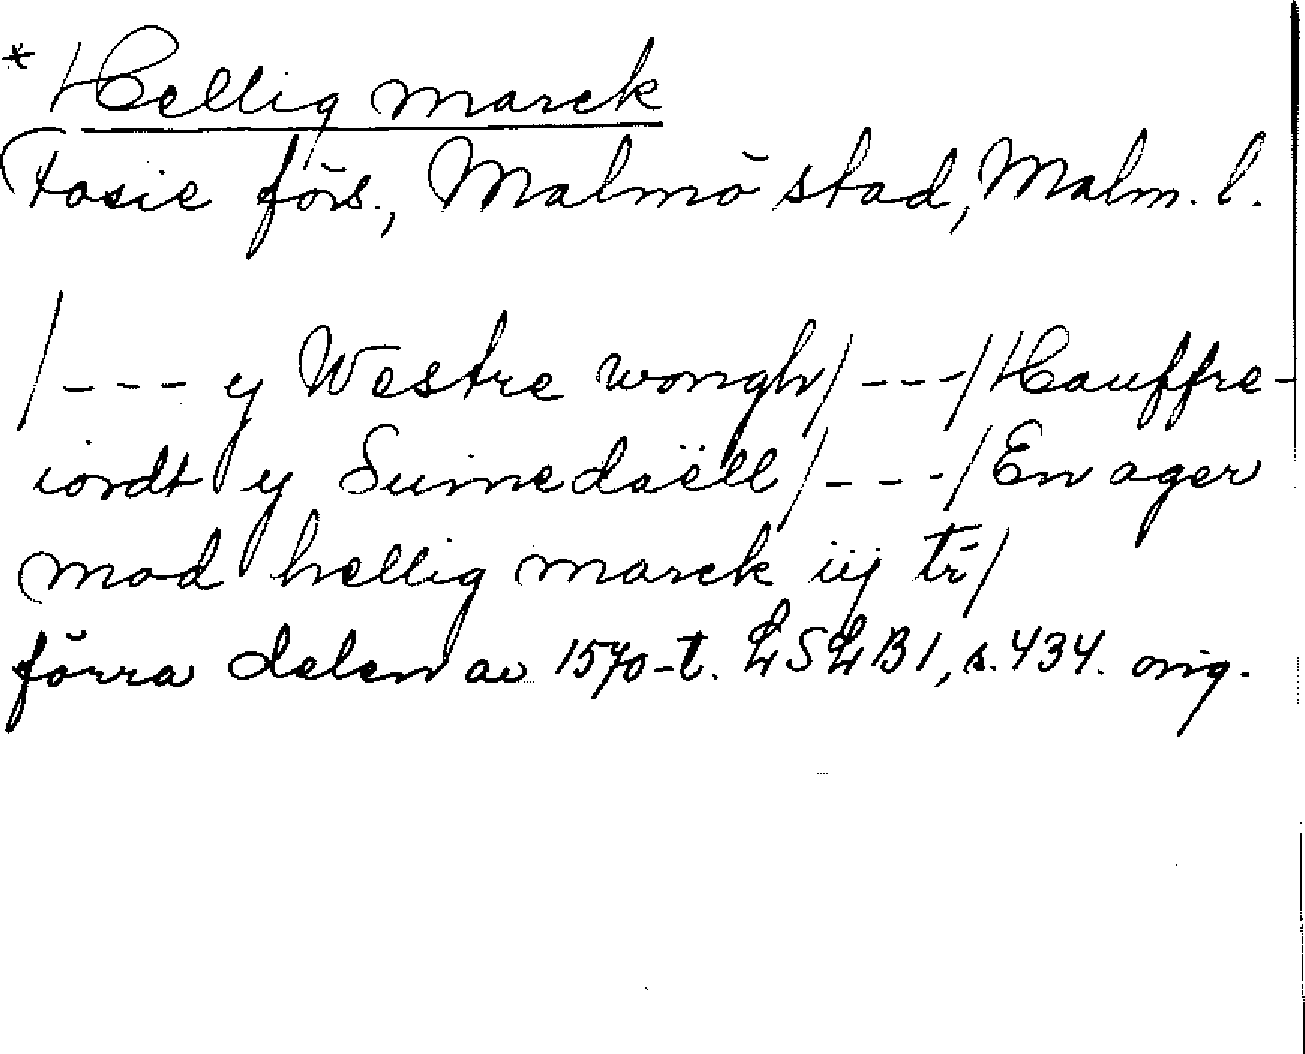 * Hellig marck
Fosie förs., Malmö stad, Malm. l.
/--- y Westre wongh/---/Hauffre-
iordt y Suinedaëll/---/En ager
mod hellig marck iij tr̄/
förra delen av 1570-t. LSLB1, s. 434. orig.